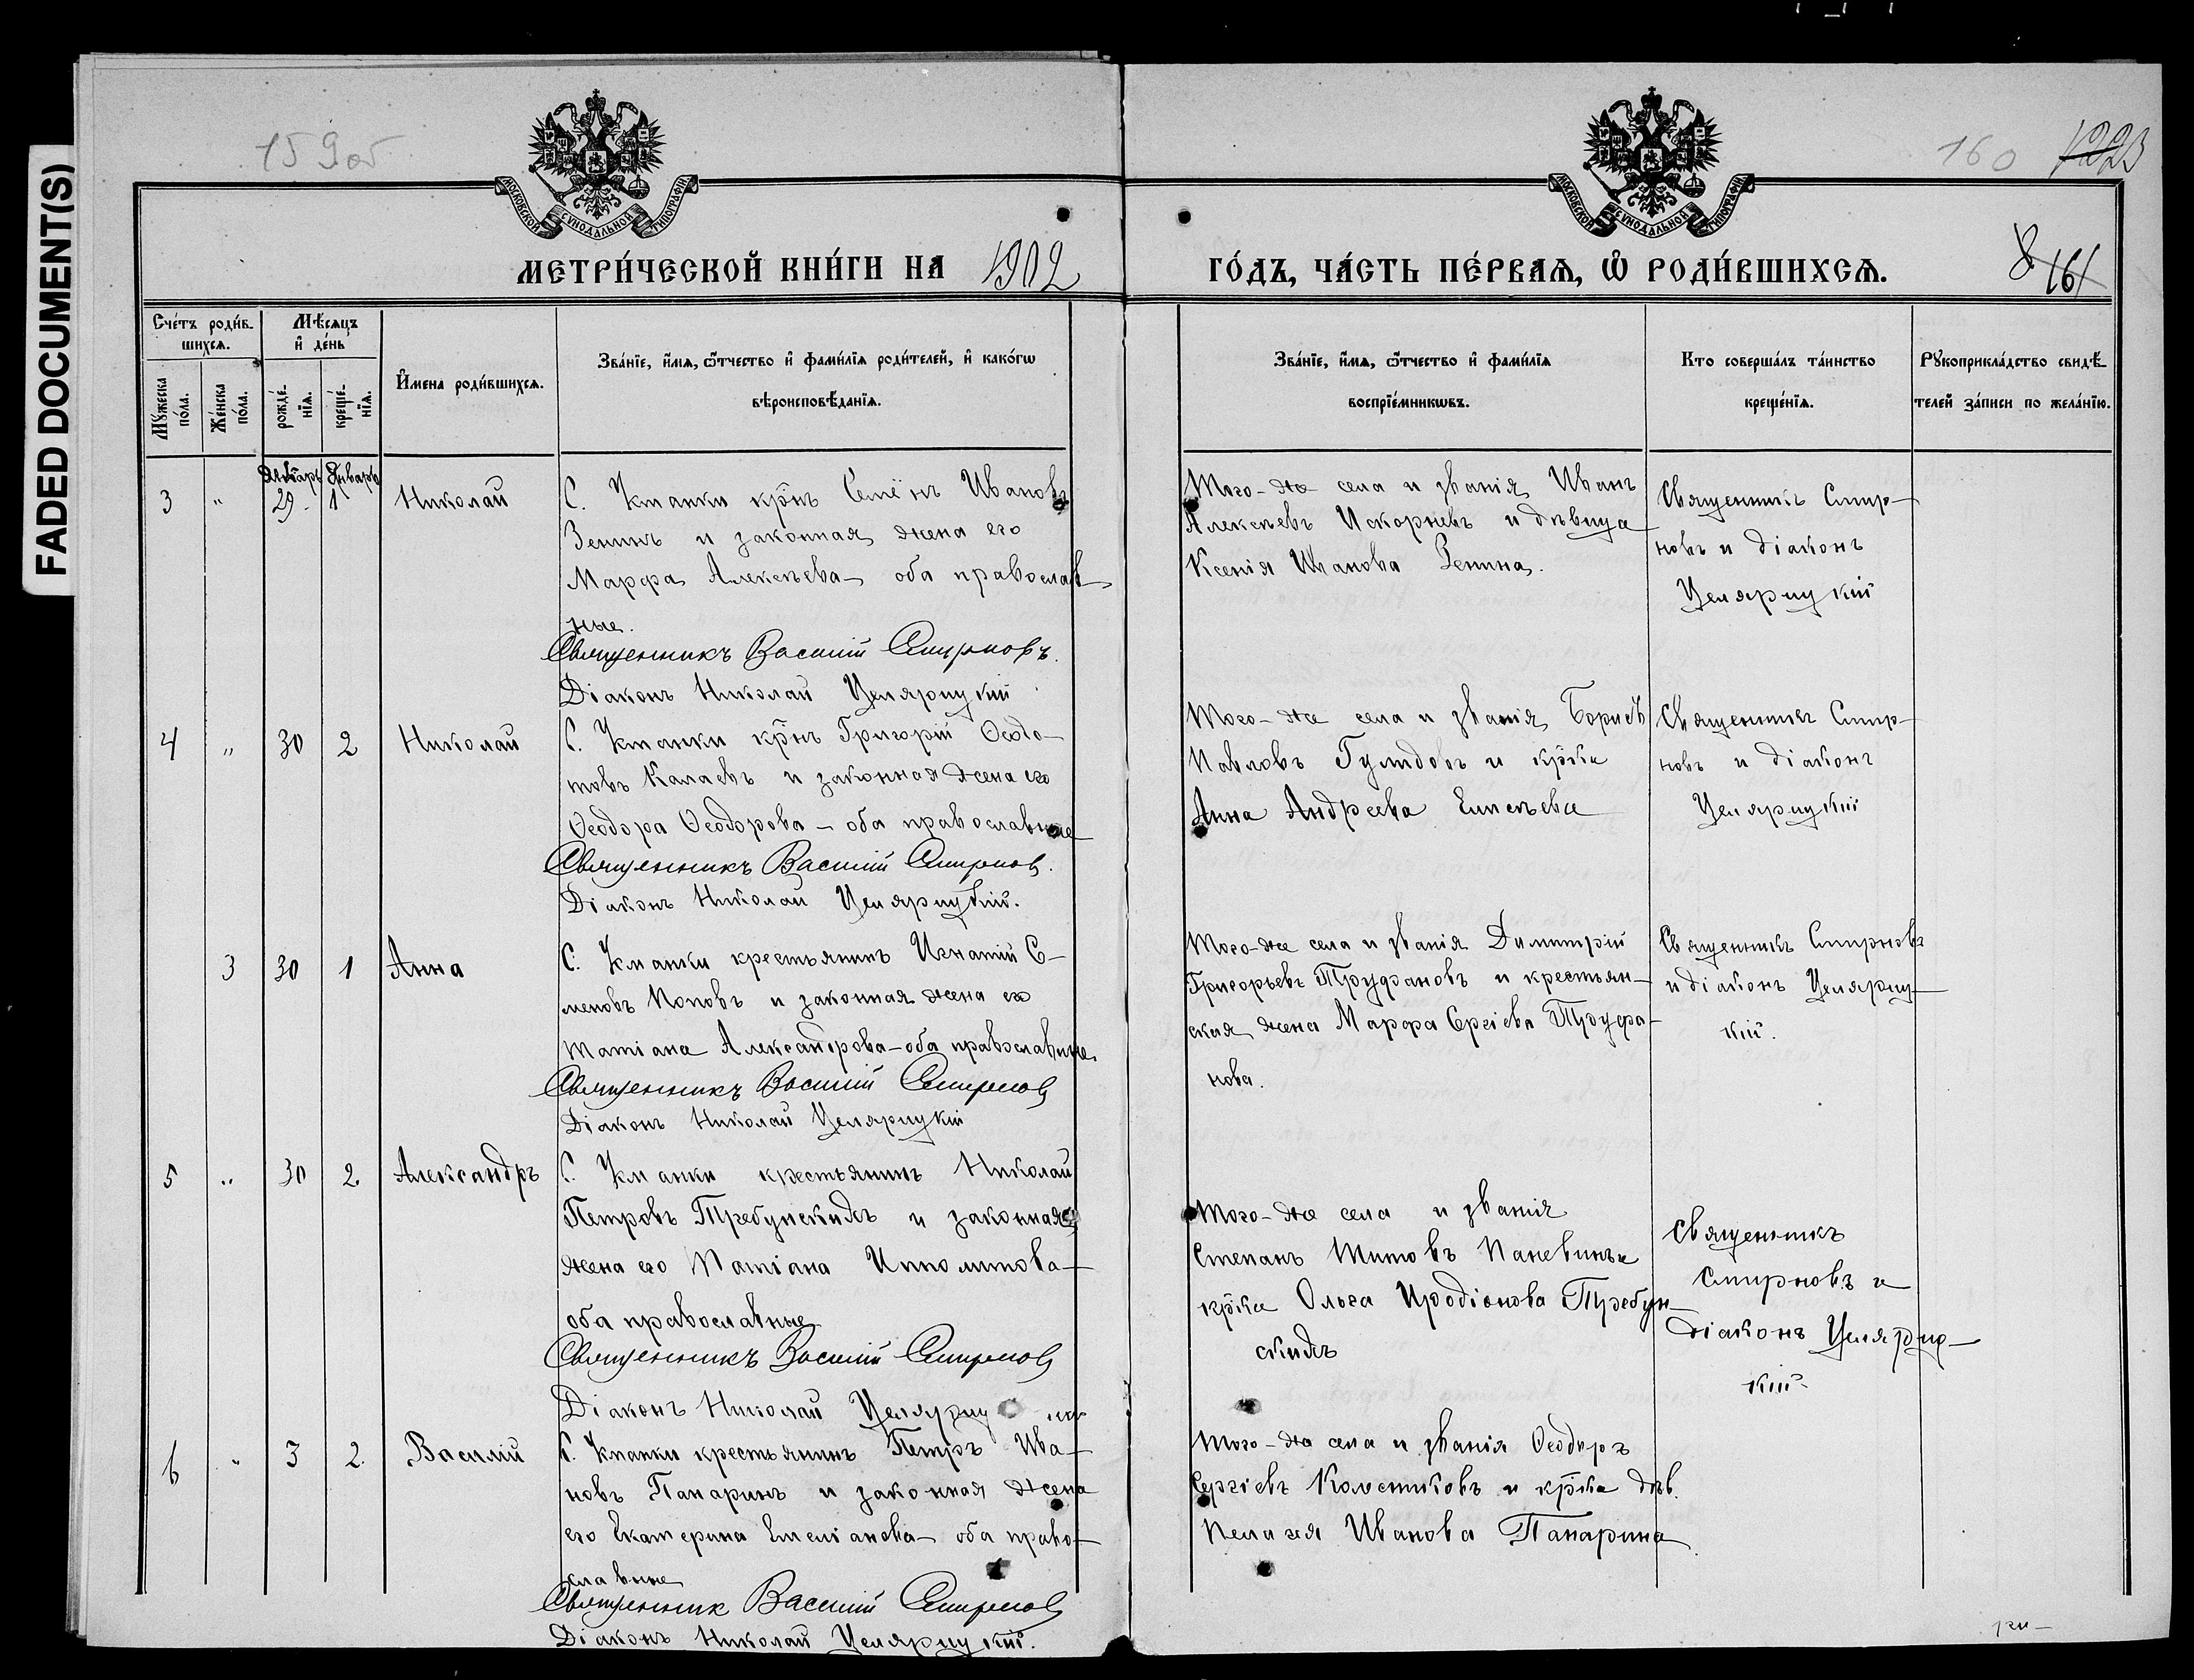 FADED DOCUMENT(S)
159об
160
1223
МОСКОВСКОЙ СѴНОДАЛЬНОЙ ТИПОГРАФІИ
МОСКОВСКОЙ СѴНОДАЛЬНОЙ ТИПОГРАФІИ
МЕТРИ́ЧЕСКОЙ КНИ́ГИ НА 1902
ГО́ДЪ, ЧА́СТЬ ПЕ́РВАѦ, Ѡ҆ РОДИ́ВШИХСѦ.
8
161
Сче́тъ роди́в-
шихсѧ.
Мѣ́сѧцъ
и҆ де́нь
И҆мена роди́вшихсѧ.
Зва́нїе, и҆́мѧ, ѻ҆́тчество и҆ фами́лїѧ роди́телей, и҆ како́гѡ
вѣроисповѣ́данїѧ.
Мꙋ́жеска по́ла.
Же́нска по́ла.
рожде́нїѧ.
креще́нїѧ.
Зва́нїе, и҆́мѧ, ѻ҆́тчество и҆ фами́лїѧ
воспрїе́мникѡвъ.
Кто соверша́лъ та́инство
креще́нїѧ.
Рꙋкоприкла́дство свидѣ́-
телей за́писи по жела́нїю.
Декабрь Январь
3 " 29 1 Николай
С. Уманки кр̃нъ Семёнъ Ивановъ
Зенинъ и законная жена его
Марфа Алексѣева оба православ-
ные.
Священникъ Василій Смирновъ.
Діаконъ Николай Целярицкій
Того-же села и званія Иванъ
Алексѣевъ и дѣвица
Ксенія Иванова Зенина.
Священникъ Смир-
новъ и діаконъ
Целярицкій
4 " 30 2 Николай
С. Уманки кр̃нъ Григорій Ѳедо-
товъ Калаевъ и законная жена его
Ѳеодора Ѳеодорова - оба православные
Священникъ Василій Смирновъ.
Діаконъ Николай Целярицкій.
Того-же села и званія Борисъ
Павловъ и кр̃ка
Анна Андреева
Священникъ Смир-
новъ и діаконъ
Целярицкій
3 30 1 Анна
С. Уманки крестьянинъ Игнатій Се-
меновъ Поповъ и законная жена его
Татіана Александрова - оба православные.
Священникъ Василій Смирновъ
Діаконъ Николай Целярицкій
Того-же села и званія Димитрій
Григорьевъ Труфановъ и крестьян-
ская жена Марфа Сергіева Труфа-
нова.
Священникъ Смирновъ
и діаконъ Целяриц-
кій.
5 " 30 2 Александръ
С. Уманки крестьянинъ Николай
Петровъ Требунскихъ и законная
жена его Татіана Ипполитова
оба православные
Священникъ Василій Смирновъ
Діаконъ Николай
Того-же села и званія
Степанъ Титовъ Паневинъ и
кр̃ка Ольга Иродіонова Требун-
скихъ
Священникъ
Смирновъ и
діаконъ Целяриц-
кій
6 " 3 2 Василій
С. Уманки крестьянинъ Петръ Ива-
новъ Панаринъ и законная жена
его Екатерина Емеліанова оба право-
славные
Священник Василій Смирновъ
Діаконъ Николай Целярицкій.
Того-же села и званія Ѳеодоръ
Сергіевъ Колесниковъ и кр̃ка дѣв.
Пелагея Иванова Панарина